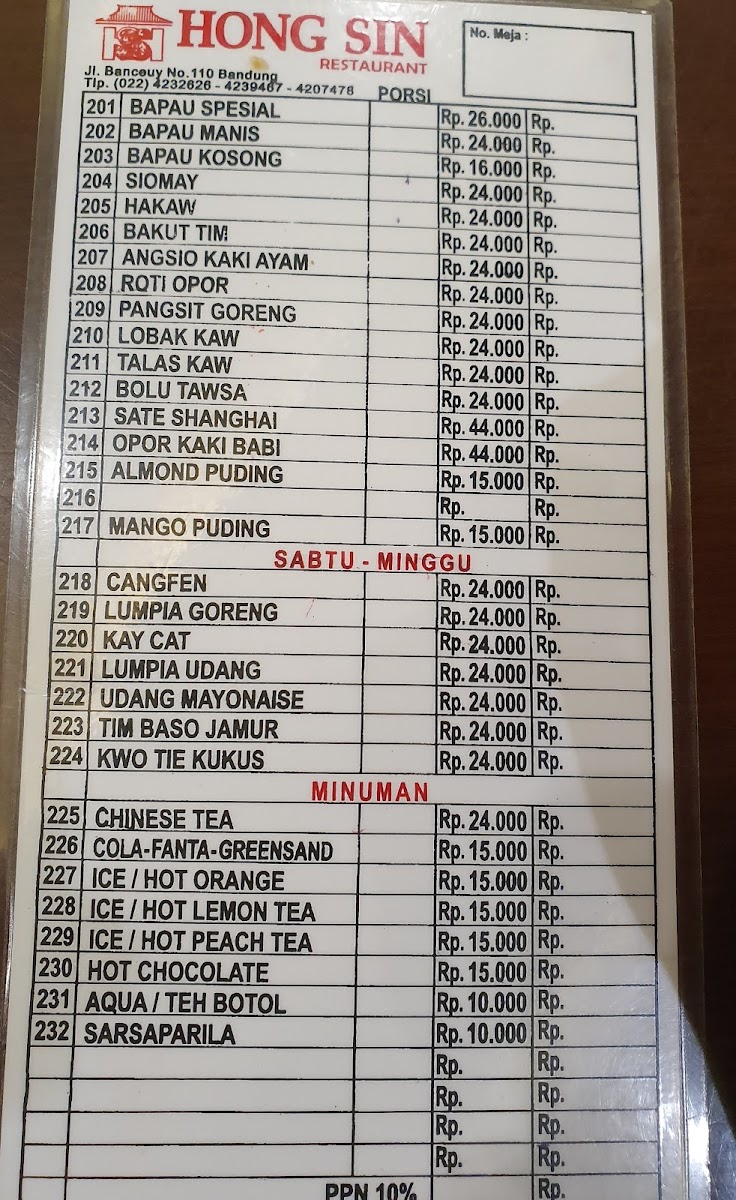 HONG SIN
RESTAURANT
No. Meja :
Jl. Banceuy No.110 Bandung
Tlp. (022) 4232626 - 4239467 - 4207478
PORSI
201 BAPAU SPESIAL Rp. 26.000 Rp.
202 BAPAU MANIS Rp. 24.000 Rp.
203 BAPAU KOSONG Rp. 16.000 Rp.
204 SIOMAY Rp. 24.000 Rp.
205 HAKAW Rp. 24.000 Rp.
206 BAKUT TIM Rp. 24.000 Rp.
207 ANGSIO KAKI AYAM Rp. 24.000 Rp.
208 ROTI OPOR Rp. 24.000 Rp.
209 PANGSIT GORENG Rp. 24.000 Rp.
210 LOBAK KAW Rp. 24.000 Rp.
211 TALAS KAW Rp. 24.000 Rp.
212 BOLU TAWSA Rp. 24.000 Rp.
213 SATE SHANGHAI Rp. 44.000 Rp.
214 OPOR KAKI BABI Rp. 44.000 Rp.
215 ALMOND PUDING Rp. 15.000 Rp.
216 Rp. Rp.
217 MANGO PUDING Rp. 15.000 Rp.
SABTU - MINGGU
218 CANGFEN Rp. 24.000 Rp.
219 LUMPIA GORENG Rp. 24.000 Rp.
220 KAY CAT Rp. 24.000 Rp.
221 LUMPIA UDANG Rp. 24.000 Rp.
222 UDANG MAYONAISE Rp. 24.000 Rp.
223 TIM BASO JAMUR Rp. 24.000 Rp.
224 KWO TIE KUKUS Rp. 24.000 Rp.
MINUMAN
225 CHINESE TEA Rp. 24.000 Rp.
226 COLA-FANTA-GREENSAND Rp. 15.000 Rp.
227 ICE / HOT ORANGE Rp. 15.000 Rp.
228 ICE / HOT LEMON TEA Rp. 15.000 Rp.
229 ICE / HOT PEACH TEA Rp. 15.000 Rp.
230 HOT CHOCOLATE Rp. 15.000 Rp.
231 AQUA / TEH BOTOL Rp. 10.000 Rp.
232 SARSAPARILA Rp. 10.000 Rp.
Rp. Rp.
Rp. Rp.
Rp. Rp.
Rp. Rp.
PPN 10% Rp.